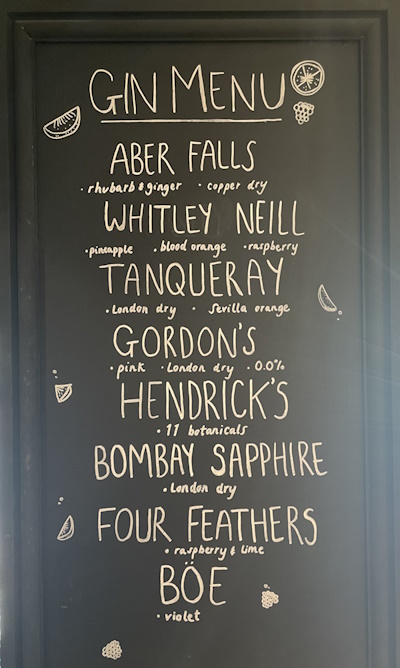 GIN MENU
ABER FALLS
· rhubarb & ginger · copper dry
WHITLEY NEILL
· pineapple · blood orange · raspberry
TANQUERAY
· London dry · Sevilla orange
GORDON'S
· pink · London dry · 0.0%
HENDRICK'S
· 11 botanicals
BOMBAY SAPPHIRE
· London dry
FOUR FEATHERS
· raspberry & lime
BÖE
· violet